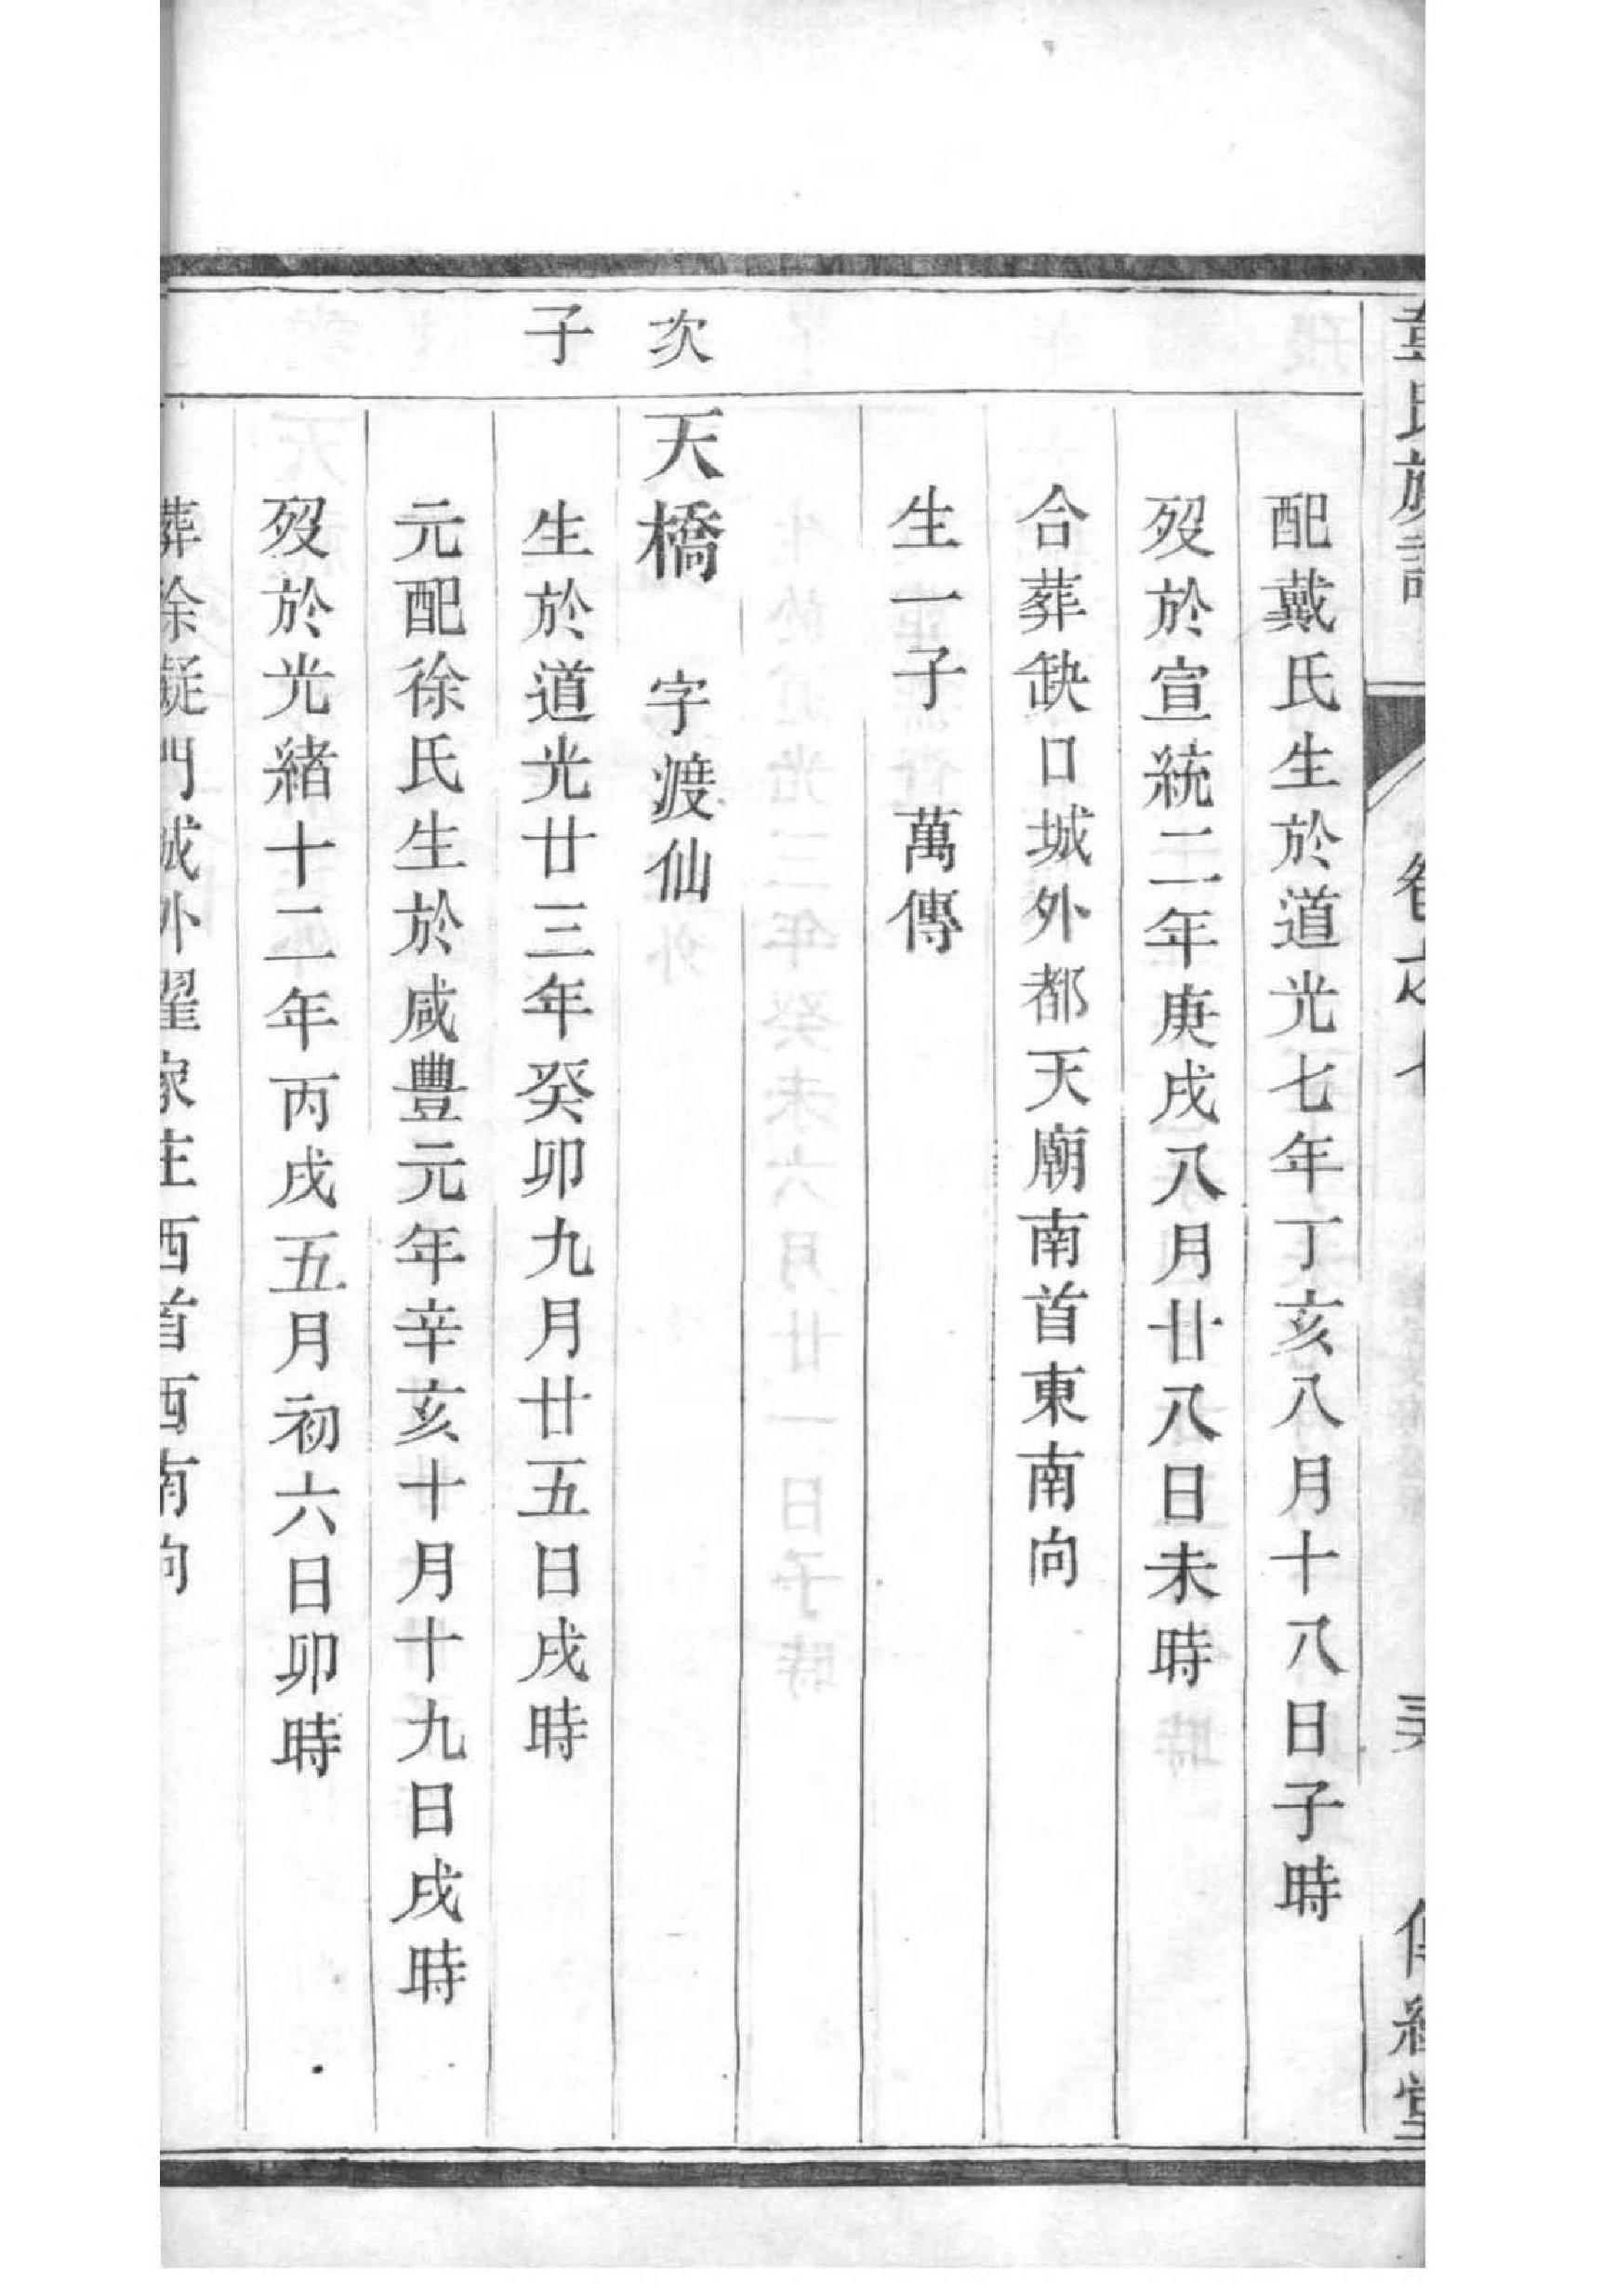 氏族譜
配戴氏生於道光七年丁亥八月十八日子時
歿於宣統二年庚戌八月廿八日未時
合葬缺口城外都天廟南首東南向
生一子 萬傳
次子
天橋 字渡仙
生於道光廿三年癸卯九月廿五日戌時
元配徐氏生於咸豐元年辛亥十月十九日戌時
歿於光緒十二年丙戌五月初六日卯時
葬徐凝門城外翟家庄西首西南向